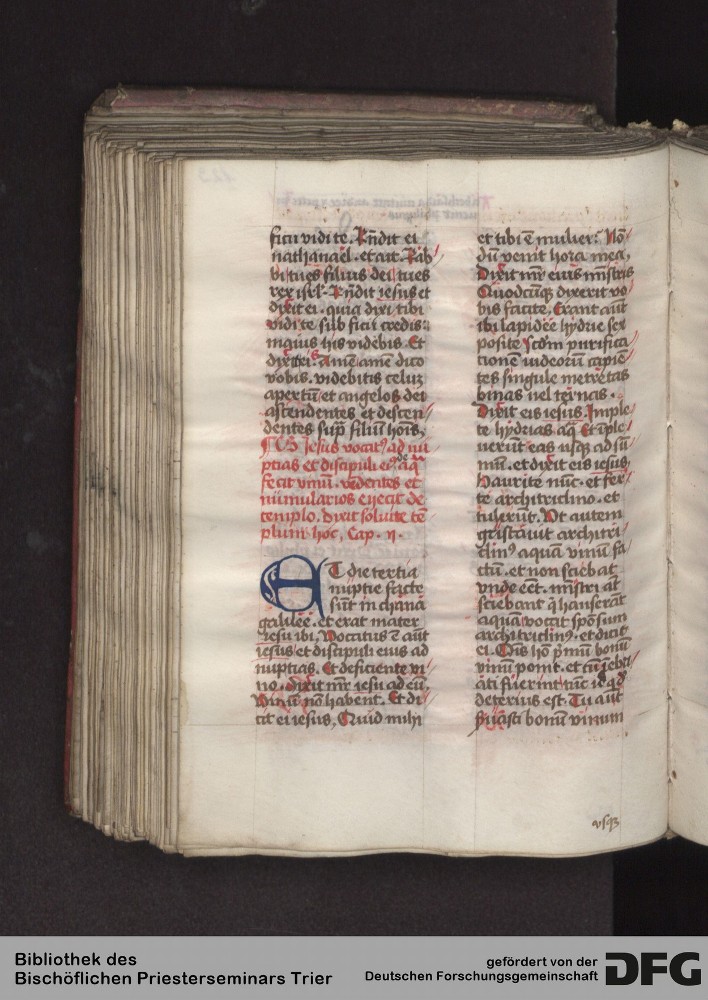 ficu vidi te. Rñdit ei
nathanael. et ait. Rab
bi tu es filius dei tu es
rex isrl. Rñdit iesus et
dixit ei. quia dixi tibi
vidi te sub ficu credis:
maius his videbis. Et
dixit ei. Amē amē dico
vobis. videbitis celuȝ
apertū et angelos dei
ascendentes et descen
dentes sup̄ filiū hoīs,
Iesus vocat᷒ ad nu
ptias et discipuli ei᷒ de aq̄
fecit vinū. vēdentes et
nūmularios eiecit de
templo. dixit soluite tē
plum hoc, Cap. ij.
ET die tertia
nuptie facte
sūt in chana
galilee. et erat mater
iesu ibi, Vocatus ē aūt
iesus et discipuli eius ad
nuptias. Et deficiente vi
no. dixit mr̄ iesu ad eū,
Vinū nō habent. Et di
cit ei iesus, Quid mihi
et tibi ē mulier? Nō
dū venit hora mea,
Dixit mr̄ eius mīstris
Quodcūqȝ dixerit vo
bis facite. Erant aūt
ibi lapidee hydrie sex
posite scd̄m purifica
tionē iudeorū capiē
tes singule metretas
binas uel ternas.
Dixit eis iesus. Imple
te hydrias aq̄ Et īple
uerūt eas usqȝ ad sū
mū. et dixit eis iesus,
Haurite nūc. et fer
te architriclino. et
tulerūt. Vt autem
gustauit architri
clin᷒ aquā vinū fa
ctū. et non sciebat
vnde eēt. mīstri aūt
sciebant q̄ hauserāt
aquā vocat sponsum
architriclin᷒. et dicit
ei. Oīs hō p̄mū bonū
vinū ponit. et cū īebri
ati fuerint tūc id qd̄
deterius est. Tu aūt
seruasti bonū vinum
vsqȝ
Bibliothek des
Bischöflichen Priesterseminars Trier
gefördert von der
Deutschen Forschungsgemeinschaft
DFG